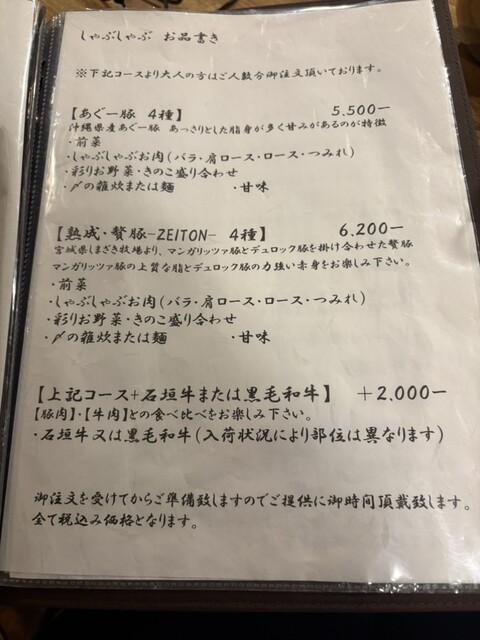 しゃぶしゃぶ お品書き
※下記コースより大人の方はご人数分御注文頂いております。
【あぐー豚 4種】 5.500ー
沖縄県産あぐー豚 あっさりとした脂身が多く甘みがあるのが特徴
・前菜
・しゃぶしゃぶお肉(バラ・肩ロース・ロース・つみれ)
・彩りお野菜・きのこ盛り合わせ
・〆の雑炊または麺 ・甘味
【熟成・贅豚-ZEITON- 4種】 6.200ー
宮城県しまざき牧場より、マンガリッツァ豚とデュロック豚を掛け合わせた贅豚
マンガリッツァ豚の上質な脂とデュロック豚の力強い赤身をお楽しみ下さい。
・前菜
・しゃぶしゃぶお肉(バラ・肩ロース・ロース・つみれ)
・彩りお野菜・きのこ盛り合わせ
・〆の雑炊または麺 ・甘味
【上記コース+石垣牛または黒毛和牛】 +2.000ー
【豚肉】・【牛肉】との食べ比べをお楽しみ下さい。
・石垣牛又は黒毛和牛(入荷状況により部位は異なります)
御注文を受けてからご準備致しますのでご提供に御時間頂戴致します。
全て税込み価格となります。